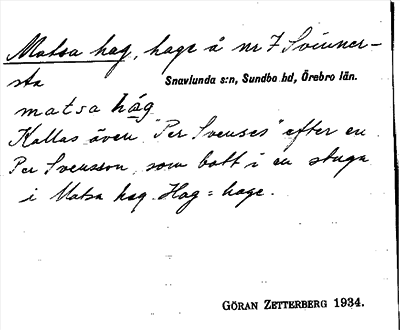 Matsa hag, hage å nr 7 Svinner-
sta Snavlunda s:n, Sundbo hd, Örebro län.
matsa hág
Kallas även "Per Svenses" efter en
Per Svensson, som bott i en stuga
i Matsa hag. Hag = hage.
GÖRAN ZETTERBERG 1934.